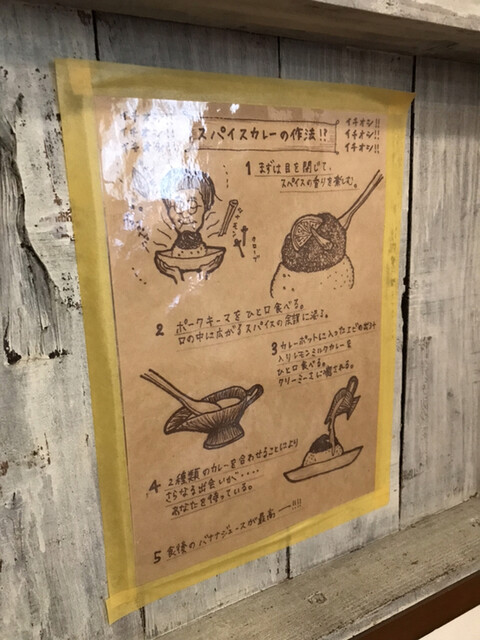 イチオシ!!
イチオシ!!
イチオシ!!
スパイスカレーの作法!?
イチオシ!!
イチオシ!!
イチオシ!!
1 まずは目を閉じて、
スパイスの香りを楽しむ。
シナモン
クローブ
2 ポークキーマをひと口食べる。
口の中に広がるスパイスの余韻に浸る。
3 カレーポットに入った
入りレモンミルクカレーを
ひと口食べる。
クリーミーさに癒される。
4 2種類のカレーを合わせることにより
さらなる出会いが‥‥
あなたを待っている。
5 食後のバナナジュースが最高ー!!!